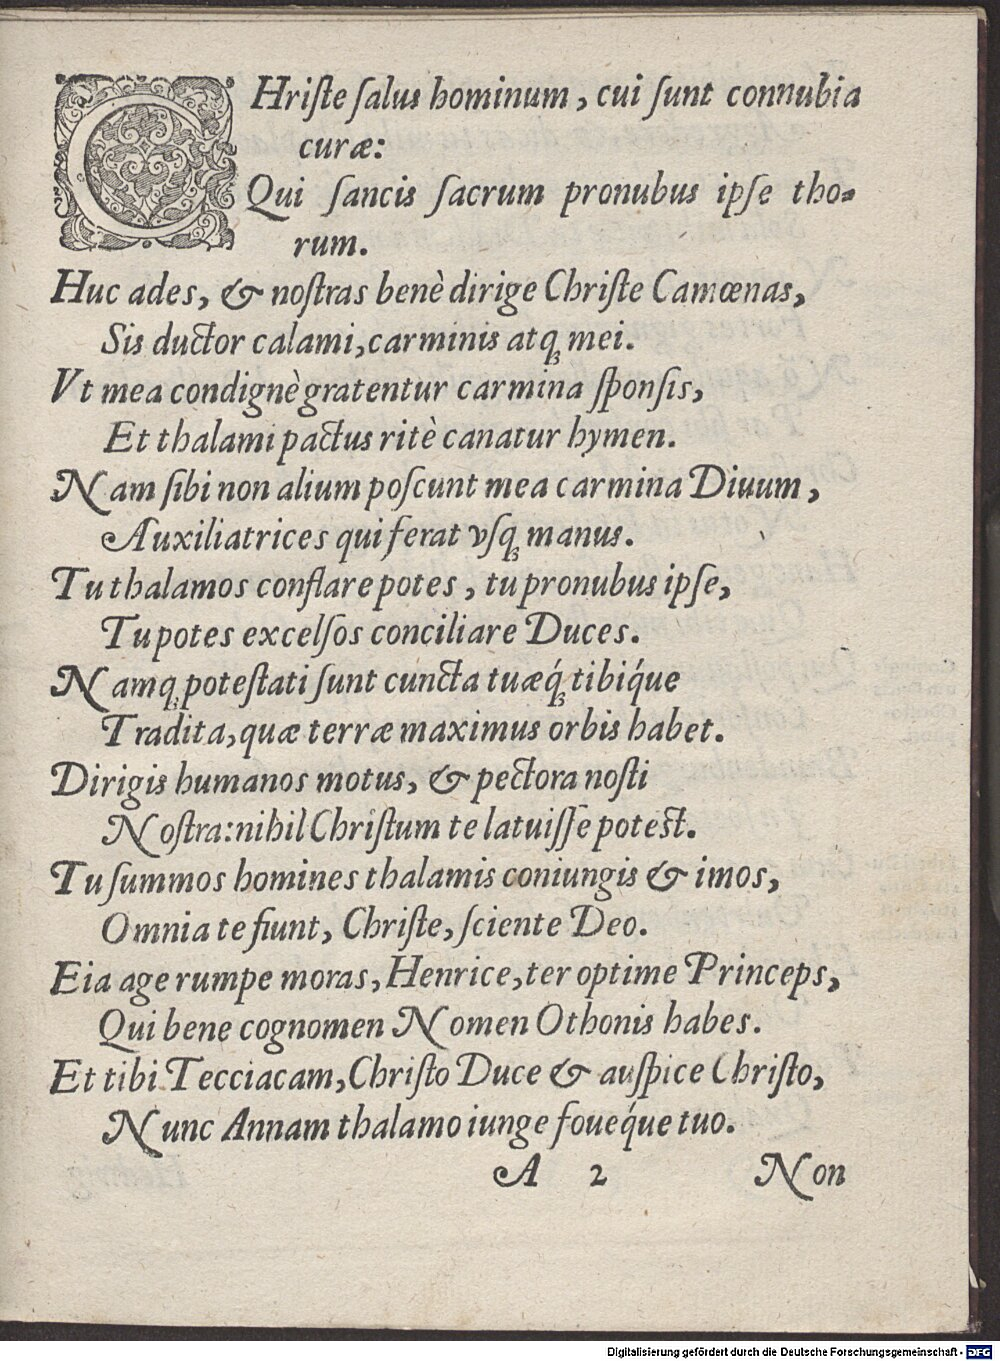 CHriſte ſalus hominum, cui ſunt connubia
curæ:
Qui ſancis ſacrum pronubus ipſe tho⸗
rum.
Huc ades, & noſtras benè dirige Chriſte Camœnas,
Sis ductor calami, carminis atq; mei.
Vt mea condignè gratentur carmina ſponſis,
Et thalami pactus ritè canatur hymen.
Nam ſibi non alium poſcunt mea carmina Diuum,
Auxiliatrices qui ferat vſq; manus.
Tu thalamos conflare potes, tu pronubus ipſe,
Tu potes excelſos conciliare Duces.
Namq; poteſtati ſunt cuncta tuæq́; tibiq́ue
Tradita, quæ terræ maximus orbis habet.
Dirigis humanos motus, & pectora noſti
Noſtra: nihil Chriſtum te latuiſſe poteſt.
Tu ſummos homines thalamis coniungis & imos,
Omnia te fiunt, Chriſte, ſciente Deo.
Eia age rumpe moras, Henrice, ter optime Princeps,
Qui bene cognomen Nomen Othonis habes.
Et tibi Tecciacam, Chriſto Duce & auſpice Chriſto,
Nunc Annam thalamo iunge foueq́ue tuo.
A 2 Non
Digitalisierung gefördert durch die Deutsche Forschungsgemeinschaft - DFG